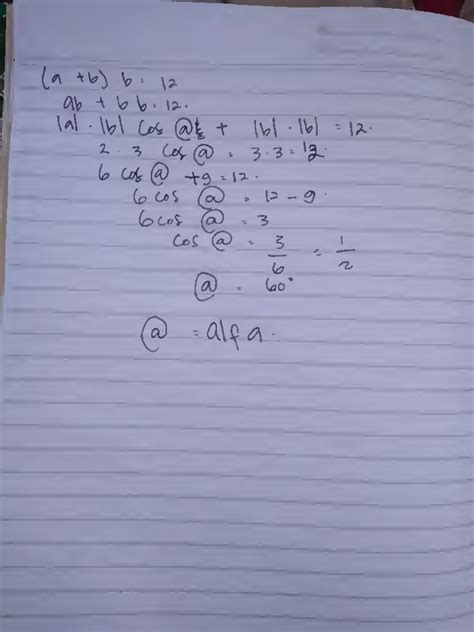 (a + b) b = 12
ab + b b = 12.
|a| · |b| cos @ + |b| · |b| = 12.
2 · 3 cos @ = 3 · 3 = 12
6 cos @ + 9 = 12.
6 cos @ = 12 - 9.
6 cos @ = 3
cos @ = 3/6 = 1/2
@ = 60°
@ = alfa.